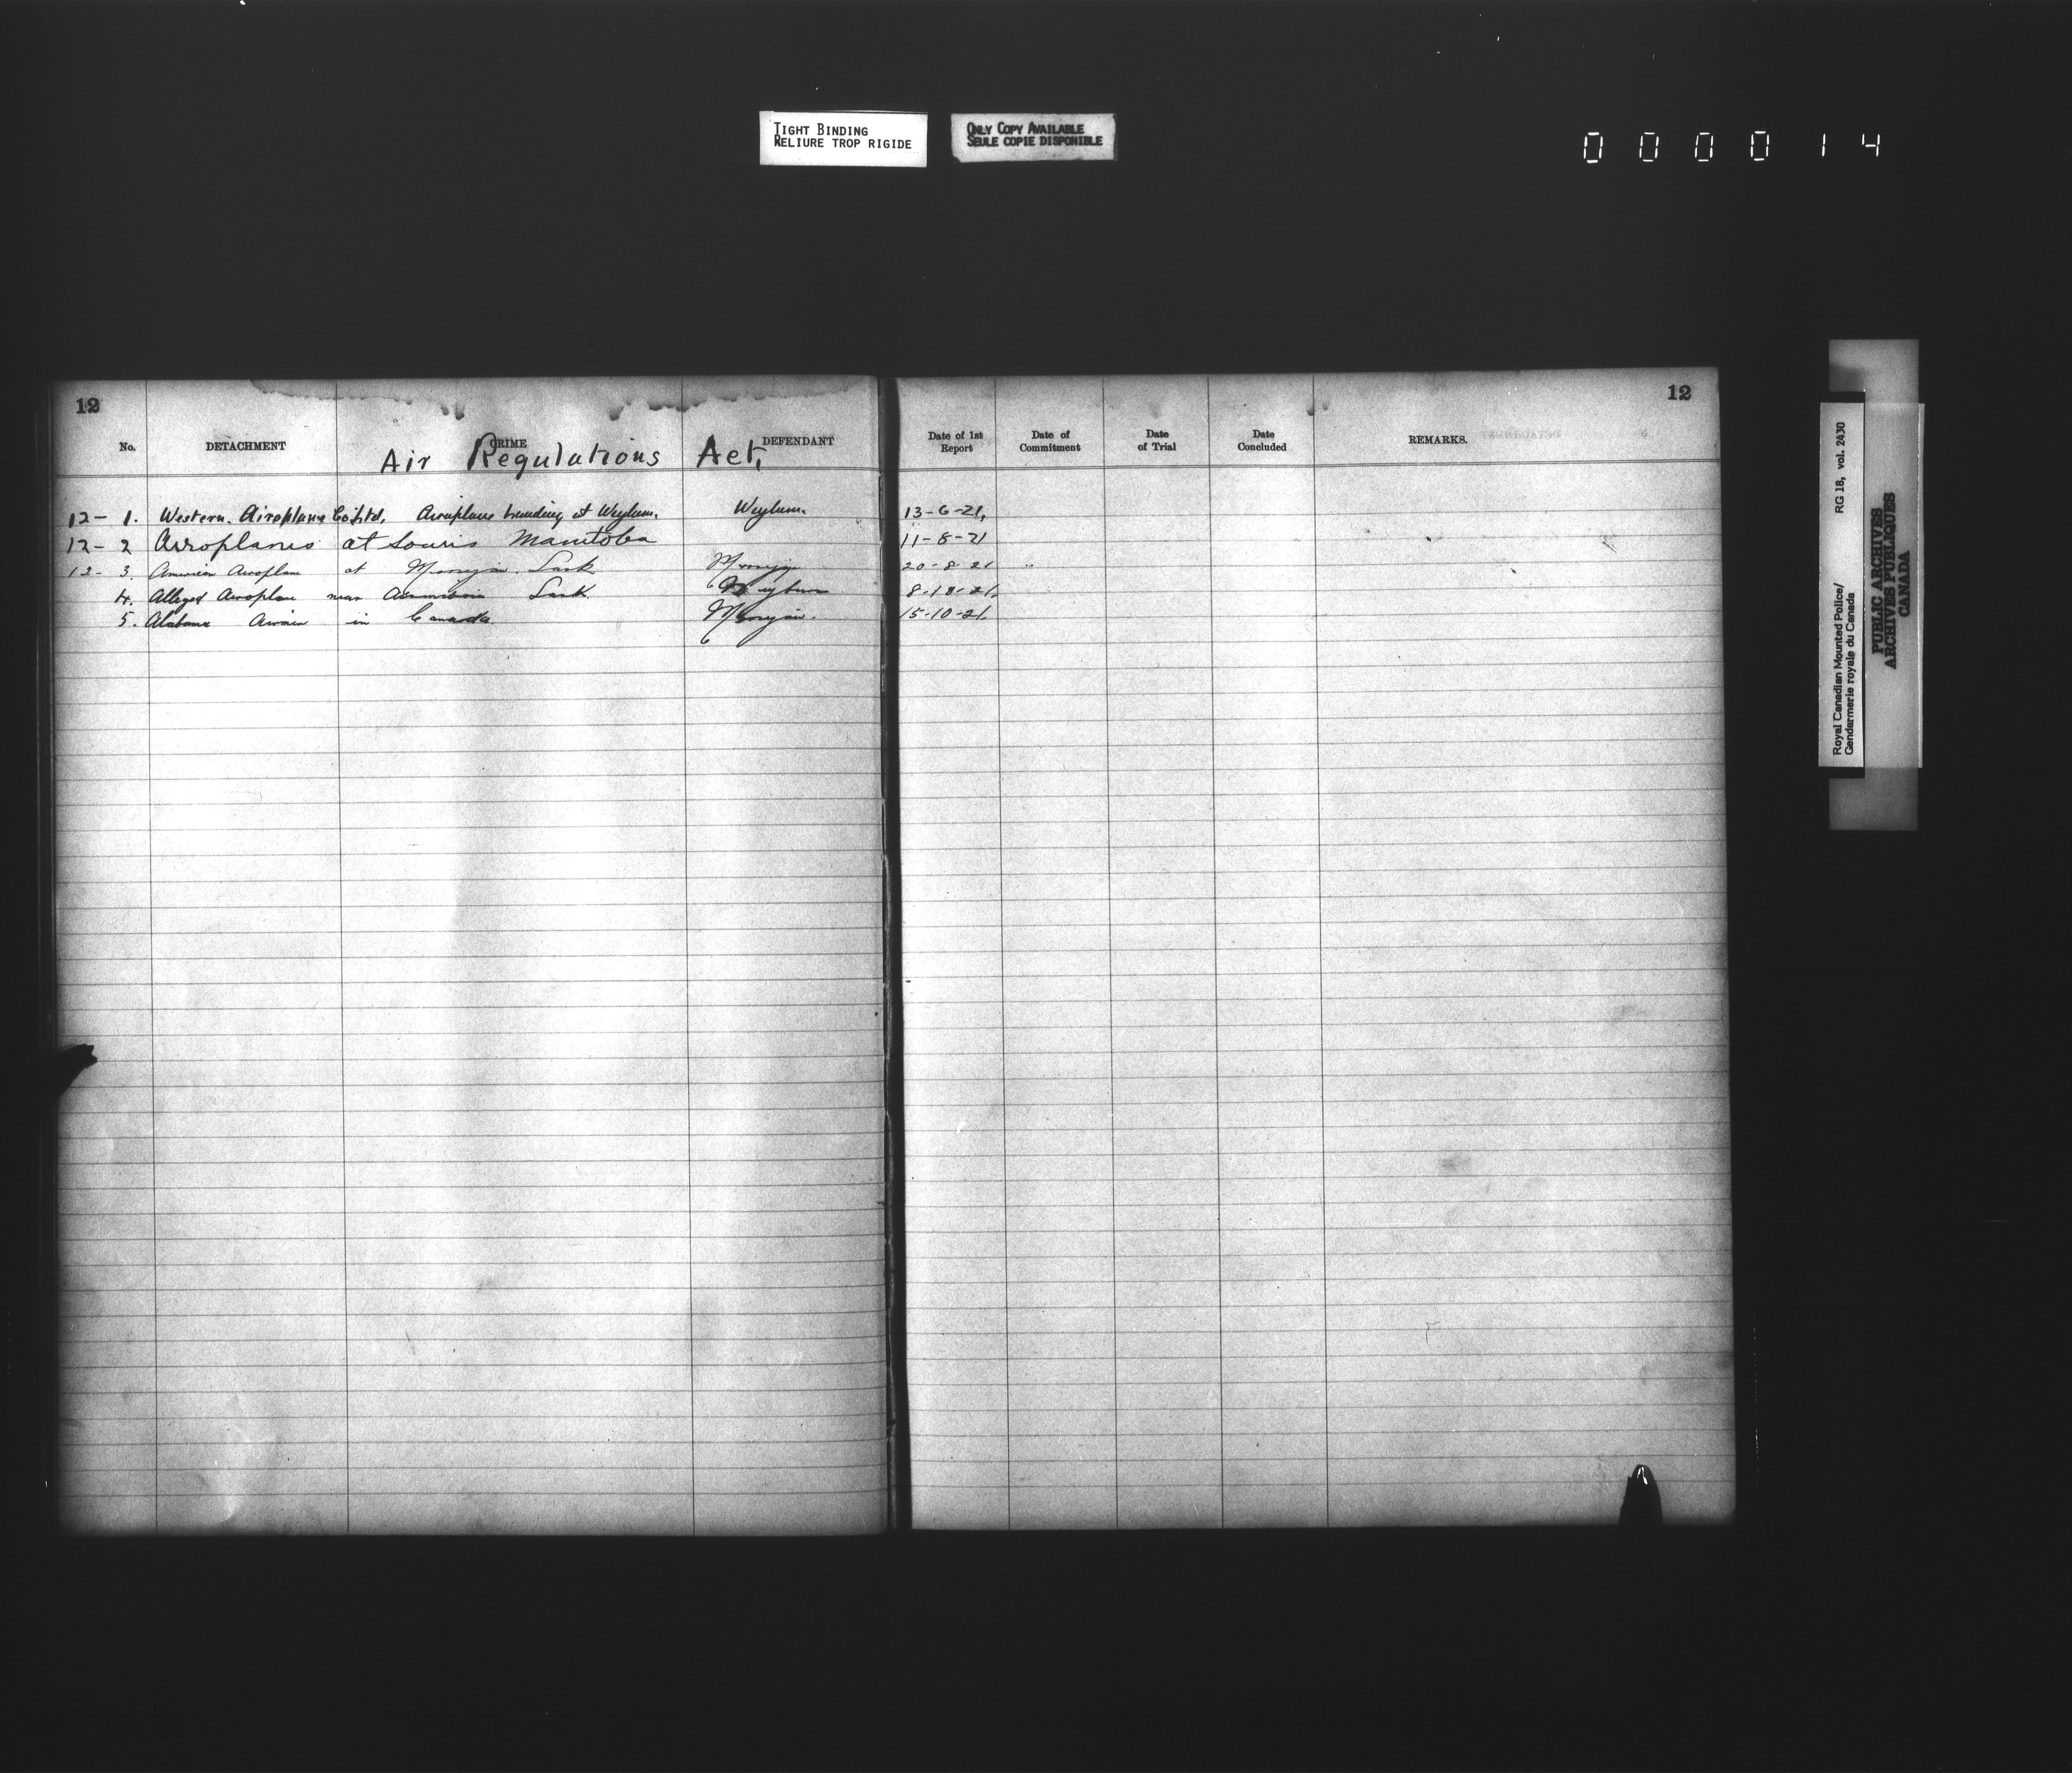 TIGHT BINDING
RELIURE TROP RIGIDE
ONLY COPY AVAILABLE
SEULE COPIE DISPONIBLE
000014
12
No. DETACHMENT CRIME DEFENDANT
Air Regulations Act,
12- 1. Western Airoplane Co Ltd, Airoplane landing at Weyburn. Weyburn.
12- 2 Airoplanes at Souris Manitoba
12- 3. American Aeroplane at Sask
4. Alleged Aeroplane near Sask. Weyburn
5. in Canada.
12
Date of 1st Report Date of Commitment Date of Trial Date Concluded REMARKS.
13-6-21,
11-8-21
20-8-21
8-10-21.
15-10-21.
Royal Canadian Mounted Police/ RG 18, vol. 2430
Gendarmerie royale du Canada
PUBLIC ARCHIVES
ARCHIVES PUBLIQUES
CANADA